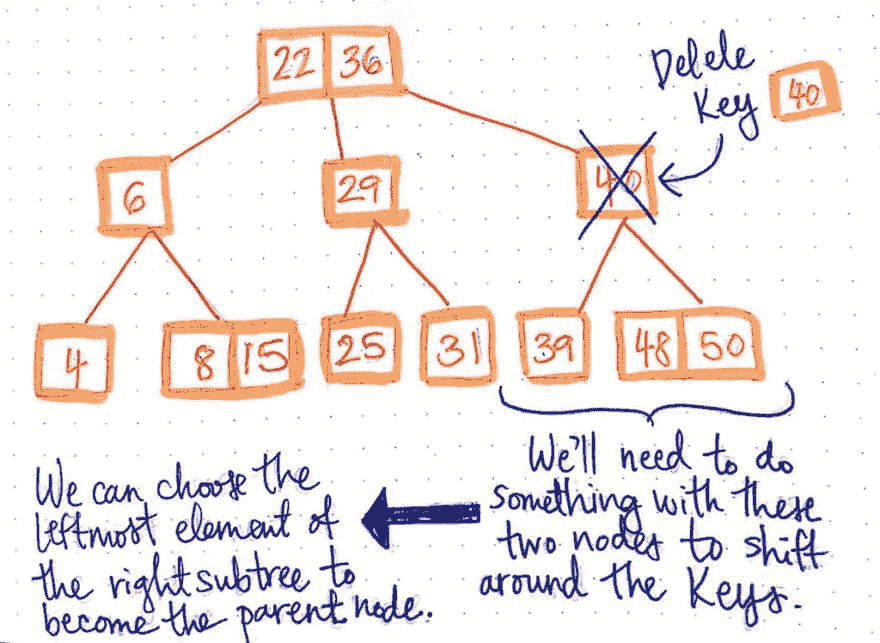 22 36
Delele
Key 40
6 29 40
4 8 15 25 31 39 48 50
We'll need to do
something with these
two nodes to shift
around the Keys.
We can choose the
leftmost element of
the right subtree to
become the parent node.